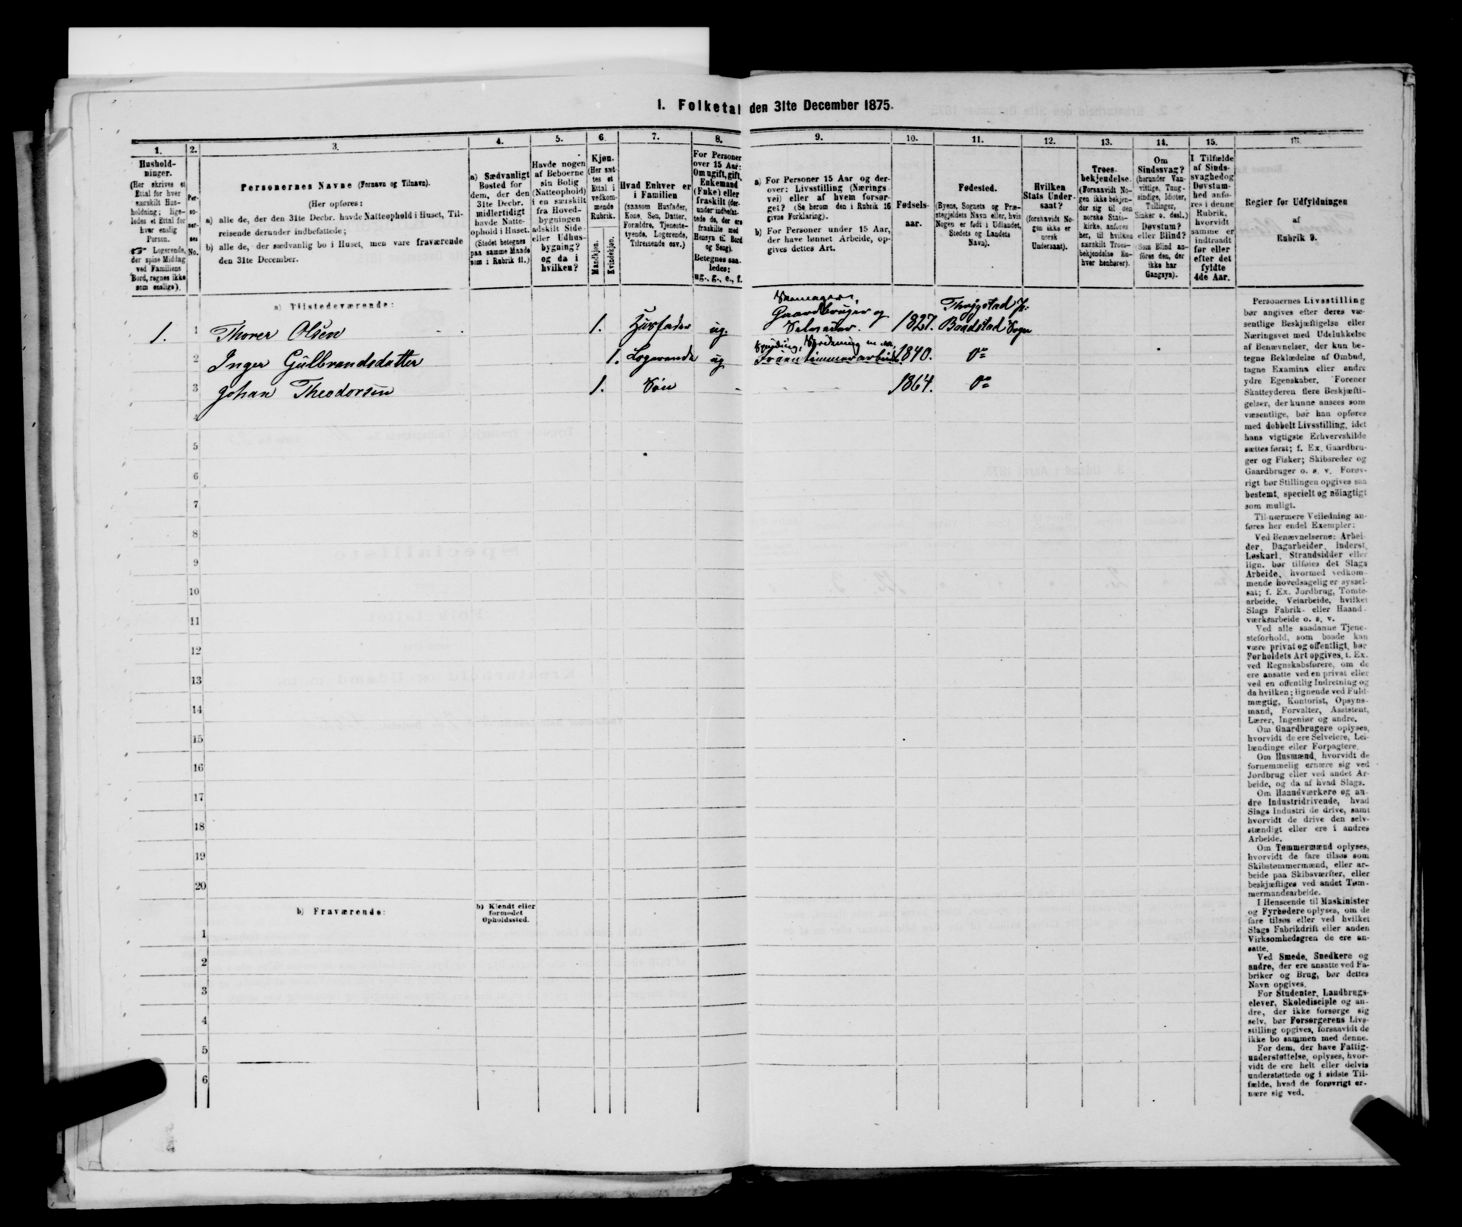 I. Folketal den 31te December 1875.
1.
2.
3.
4.
5.
6.
7.
8.
9.
10.
11.
12.
13.
14.
15.
16.
Hushold-
ninger.
(Her skrives et
Ettal for hver
særskilt Hus-
holdning; lige-
ledes et Ettal for
hver enslig
Person.
Logerende,
der spise Middag
ved Familiens
Bord, regnes ikke
som enslige).
Per-
so-
ner-
nes
No.
Personernes Navne (Fornavn og Tilnavn).
(Her opføres:
a) alle de, der den 31te Decbr. havde Natteophold i Huset, Til-
reisende derunder indbefattede;
b) alle de, der sædvanlig bo i Huset, men vare fraværende
den 31te December.
a) Sædvanligt
Bosted for
dem, der den
31te Decbr.
midlertidigt
havde Natte-
ophold i Huset.
(Stedet betegnes
paa samme Maade
som i Rubrik 11.)
Havde nogen
af Beboerne
sin Bolig
(Natteophold)
i en særskilt
fra Hoved-
bygningen
adskilt Side-
eller Udhus-
bygning?
og da i
hvilken?
Kjøn.
(Her sæt-
tes et
Ettal i
vedkom-
mende
Rubrik.
Mandkjøn.
Kvindekjøn.
Hvad Enhver er
i Familien
(saasom Husfader,
Kone, Søn, Datter,
Forældre, Tjeneste-
tyende, Logerende,
Tilreisende osv.)
For Personer
over 15 Aar:
Om ugift, gift,
Enkemand
(Enke) eller
fraskilt
Betegnes saa-
ledes:
ug., g., e., f.
a) For Personer 15 Aar og der-
over: Livsstilling (Nærings-
vei) eller af hvem forsør-
get? (Se herom den i Rubrik 16
givne Forklaring).
b) For Personer under 15 Aar,
der have lønnet Arbeide, op-
gives dettes Art.
Fødsels-
aar.
Fødested.
(Byens, Sognets og Præ-
stegjeldets Navn eller, hvis
Nogen er født i Udlandet,
Stedets og Landets
Navn).
Hvilken
Stats Under-
saat?
(forsaavidt No-
gen ikke er
norsk
Undersaat).
Troes-
bekjendelse.
(Forsaavidt No-
gen ikke bekjen-
der sig til den
norske Stats-
kirke, anføres
her, til hvilken
særskilt Troes-
bekjendelse En-
hver henhører).
Om
Sindssvag?
(herunder Van-
vittige, Tung-
sindige, Idioter,
Tullinger,
Sinker o. desl.)
Døvstum?
eller Blind?
(Som Blind an-
føres den, der
ikke har
Gangsyn).
I Tilfælde
af Sinds-
svaghed og
Døvstum-
hed anfø-
res i denne
Rubrik,
hvorvidt
samme er
indtraadt
før eller
efter det
fyldte
4de Aar.
Regler for Udfyldningen
af
Rubrik 9.
a) Tilstedeværende:
1. 1 Thorer Olsen 1. Husfader ug. Gaardbruger og Selveier. 1827. Baadstad Sogn
2 Inger Gulbrandsdatter 1. Logerende ug 1840. Do
3 Johan Theodorsen 1. Søn 1864. Do
4
5
6
7
8
9
10
11
12
13
14
15
16
17
18
19
20
b) Fraværende:
b) Kjendt eller
formodet
Opholdssted.
1
2
3
4
5
6
Personernes Livsstilling
bør angives efter deres væ-
sentlige Beskjæftigelse eller
Næringsvei med Udelukkelse
af Benævnelser, der kun be-
tegne Beklædelse af Ombud,
tagne Examina eller andre
ydre Egenskaber. Forener
Skatteyderen flere Beskjæfti-
gelser, der kunne ansees som
væsentlige, bør han opføres
med dobbelt Livsstilling, idet
hans vigtigste Erhvervskilde
sættes først; f. Ex. Gaardbru-
ger og Fisker; Skibsreder og
Gaardbruger o. s. v. Forøv-
rigt bør Stillingen opgives saa
bestemt, specielt og nöiagtigt
som muligt.
Til nærmere Veiledning an-
føres her endel Exempler:
Ved Benævnelserne: Arbei-
der, Dagarbeider, Inderst,
Løskarl, Strandsidder eller
lign. bør tilføies det Slags
Arbeide, hvormed vedkom-
mende hovedsagelig er syssel-
sat; f. Ex. Jordbrug, Tomte-
arbeide, Veiarbeide, hvilket
Slags Fabrik- eller Haand-
værksarbeide o. s. v.
Ved alle saadanne Tjene-
steforhold, som baade kan
være privat og offentligt, bør
Forholdets Art opgives, f. Ex.
ved Regnskabsførere, om de
ere ansatte ved en privat eller
ved en offentlig Indretning og
da hvilken; lignende ved Fuld-
mægtig, Kontorist, Opsyns-
mand, Forvalter, Assistent,
Lærer, Ingeniør og andre.
Om Gaardbrugere oplyses,
hvorvidt de ere Selveiere, Lei-
lændinge eller Forpagtere.
Om Husmænd, hvorvidt de
fornemmelig ernære sig ved
Jordbrug eller ved andet Ar-
beide, og da af hvad Slags.
Om Haandværkere og an-
dre Industridrivende, hvad
Slags Industri de drive, samt
hvorvidt de drive den selv-
stændigt eller ere i andres
Arbeide.
Om Tømmermænd oplyses,
hvorvidt de fare tilsøs som
Skibstømmermænd, eller ar-
beide paa Skibsværfter, eller
beskjæftiges ved andet Tøm-
mermandsarbeide.
I Henseende til Maskinister
og Fyrbødere oplyses, om de
fare tilsøs eller ved hvilket
Slags Fabrikdrift eller anden
Virksomhedsgren de ere an-
satte.
Ved Smede, Snedkere og
andre, der ere ansatte ved Fa-
briker og Brug, bør dettes
Navn opgives.
For Studenter, Landbrugs-
elever, Skoledisciple og an-
dre, der ikke forsørge sig
selv, bør Forsørgerens Livs-
stilling opgives, forsaavidt de
ikke bo sammen med denne.
For dem, der have Fattig-
understøttelse, oplyses, hvor-
vidt de ere helt eller delvis
understøttede og i sidste Til-
fælde, hvad de forøvrigt er-
nære sig ved.